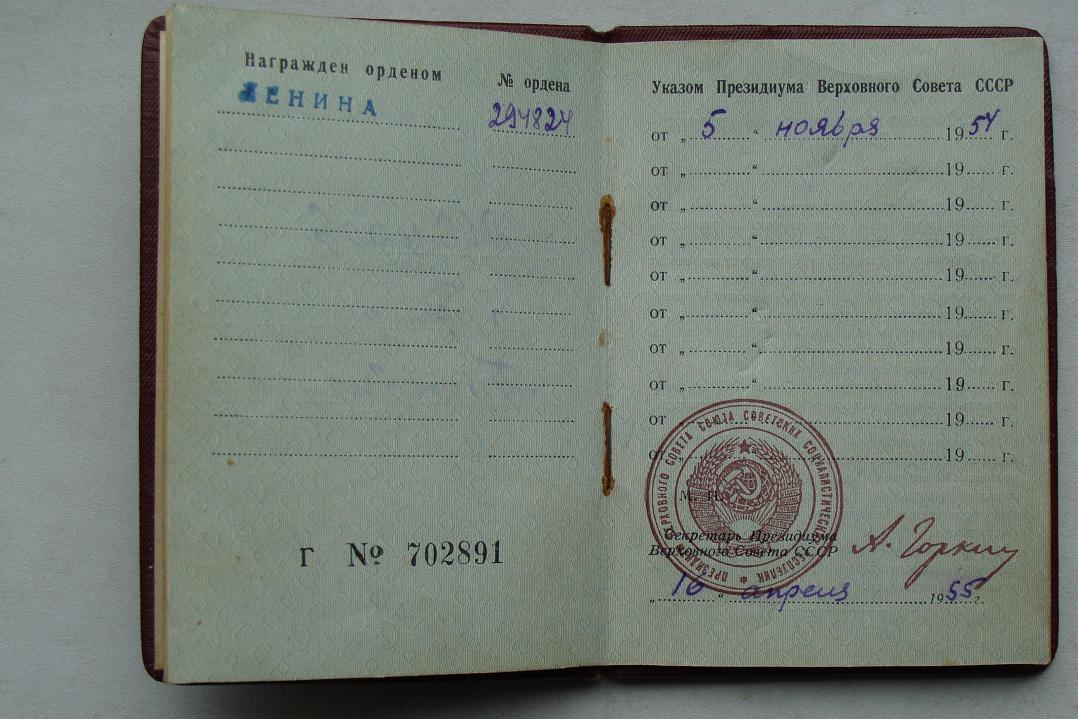 Награжден орденом № ордена
ЛЕНИНА 294824
Г № 702891
Указом Президиума Верховного Совета СССР
от „ 5 “ ноября 1954 г.
от „ “ 19 г.
от „ “ 19 г.
от „ “ 19 г.
от „ “ 19 г.
от „ “ 19 г.
от „ “ 19 г.
от „ “ 19 г.
от „ “ 19 г.
от „ “ 19 г.
М. П.
ПРЕЗИДИУМ ВЕРХОВНОГО СОВЕТА СОЮЗА СОВЕТСКИХ СОЦИАЛИСТИЧЕСКИХ РЕСПУБЛИК
Секретарь Президиума
Верховного Совета СССР А. Горкин
„ 16 “ апреля 1955 г.